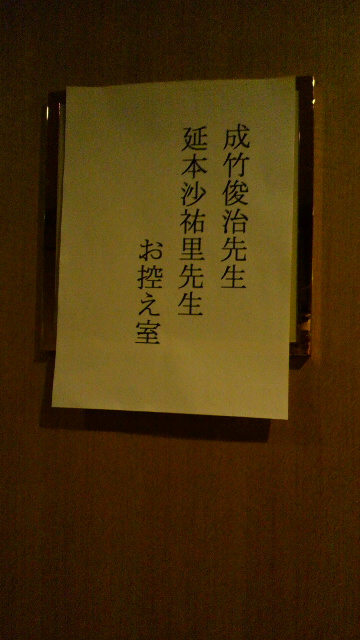 成竹俊治先生
延本沙祐里先生
お控え室